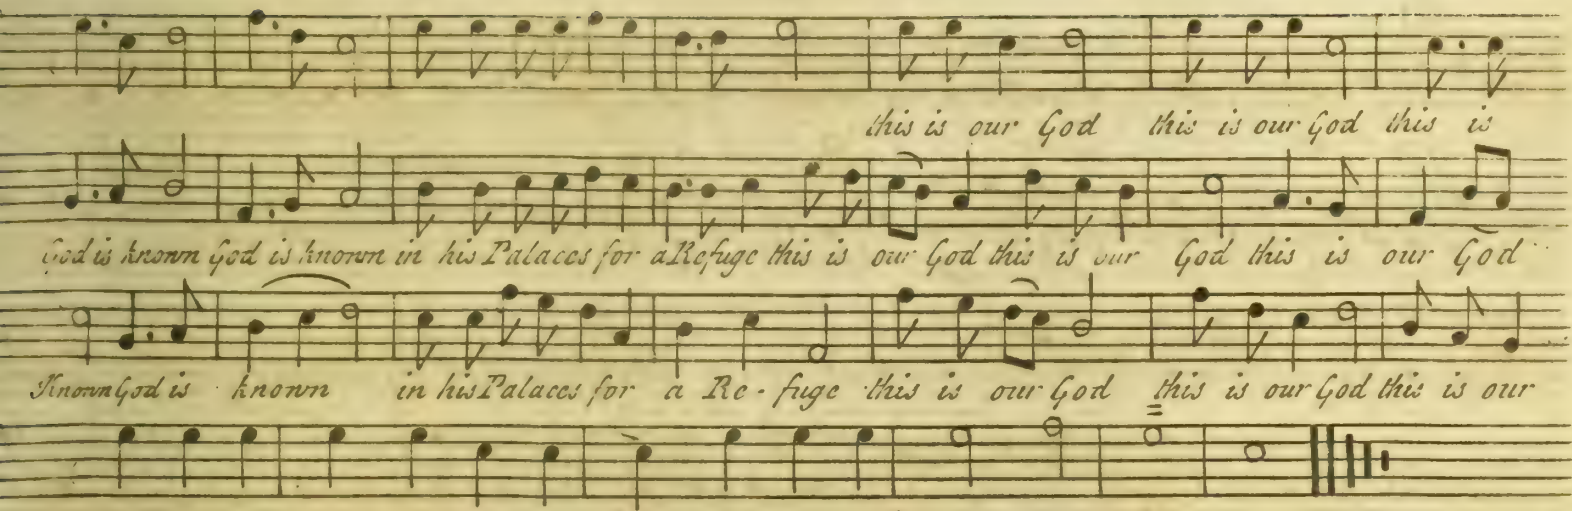 this is our God this is our God this is
God is known God is known in his Palaces for a Refuge this is our God this is our God this is our God
Known God is known in his Palaces for a Re - fuge this is our God this is our God this is our